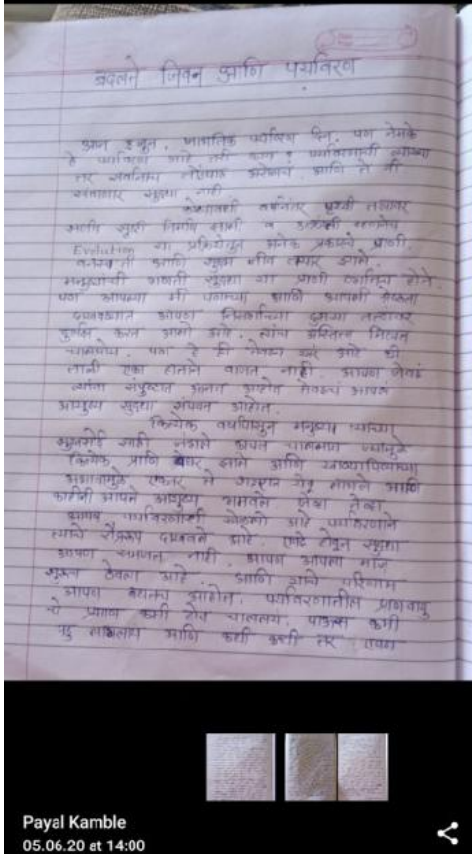 बदलते जिवन आणि पर्यावरण
आज ५ जून, जागतिक पर्यावरण दिन. पण नेमके
हे पर्यावरण आहे तरी काय ? पर्यावरणाची व्याख्या
तर सर्वांनाच आणि ते मी
सांगणार सुद्धा नाही.
वर्षांनंतर पृथ्वी तलावर
सजीव सृष्टी निर्माण झाली व
Evolution या प्रक्रियेतून अनेक प्रकारचे प्राणी,
वनस्पती आणि सूक्ष्म जीव तयार झाले.
मनुष्याची गणती सुद्धा या प्राणी होते.
पण आपल्या मी पणाच्या आणि आपली श्रेष्ठता
आपण निसर्गाच्या
करत आलो आहे. त्यांच अस्तित्व मिटवत
चाललोय. पण हे ही तेवढच खर आहे की
ताली एका हाताने वाजत नाही. आपण जेवढं
त्यांना संपुष्टात आणत आहोत तेवढच आपलं
आयुष्य सुद्धा संपवत आहोत.
कित्येक वर्षांपासुन मनुष्य त्याच्या
साठी जंगले कापत चाललाय ज्यामुळे
कित्येक प्राणि बेघर झाले आणि खाण्यापिण्याच्या
अभावामुळे ते येवू लागले आणि
काहींनी आपले आयुष्य गमवले जेव्हा तेव्हा
आपण पर्यावरणाशी आहे पर्यावरणाने
त्याचे रौद्ररूप दाखवले आहे. एवढे होवून सुद्धा
आपण समजत नाही. आपण आपला माज
सुरूच ठेवला आहे. आणि याचे परिणाम
आपण बघतच आहोत. पर्यावरणातील प्राणवायु
चे प्रमाण कमी होत चाललय. पाऊस कमी
पडू लागलाय आणि कधी कधी तर
Payal Kamble
05.06.20 at 14:00